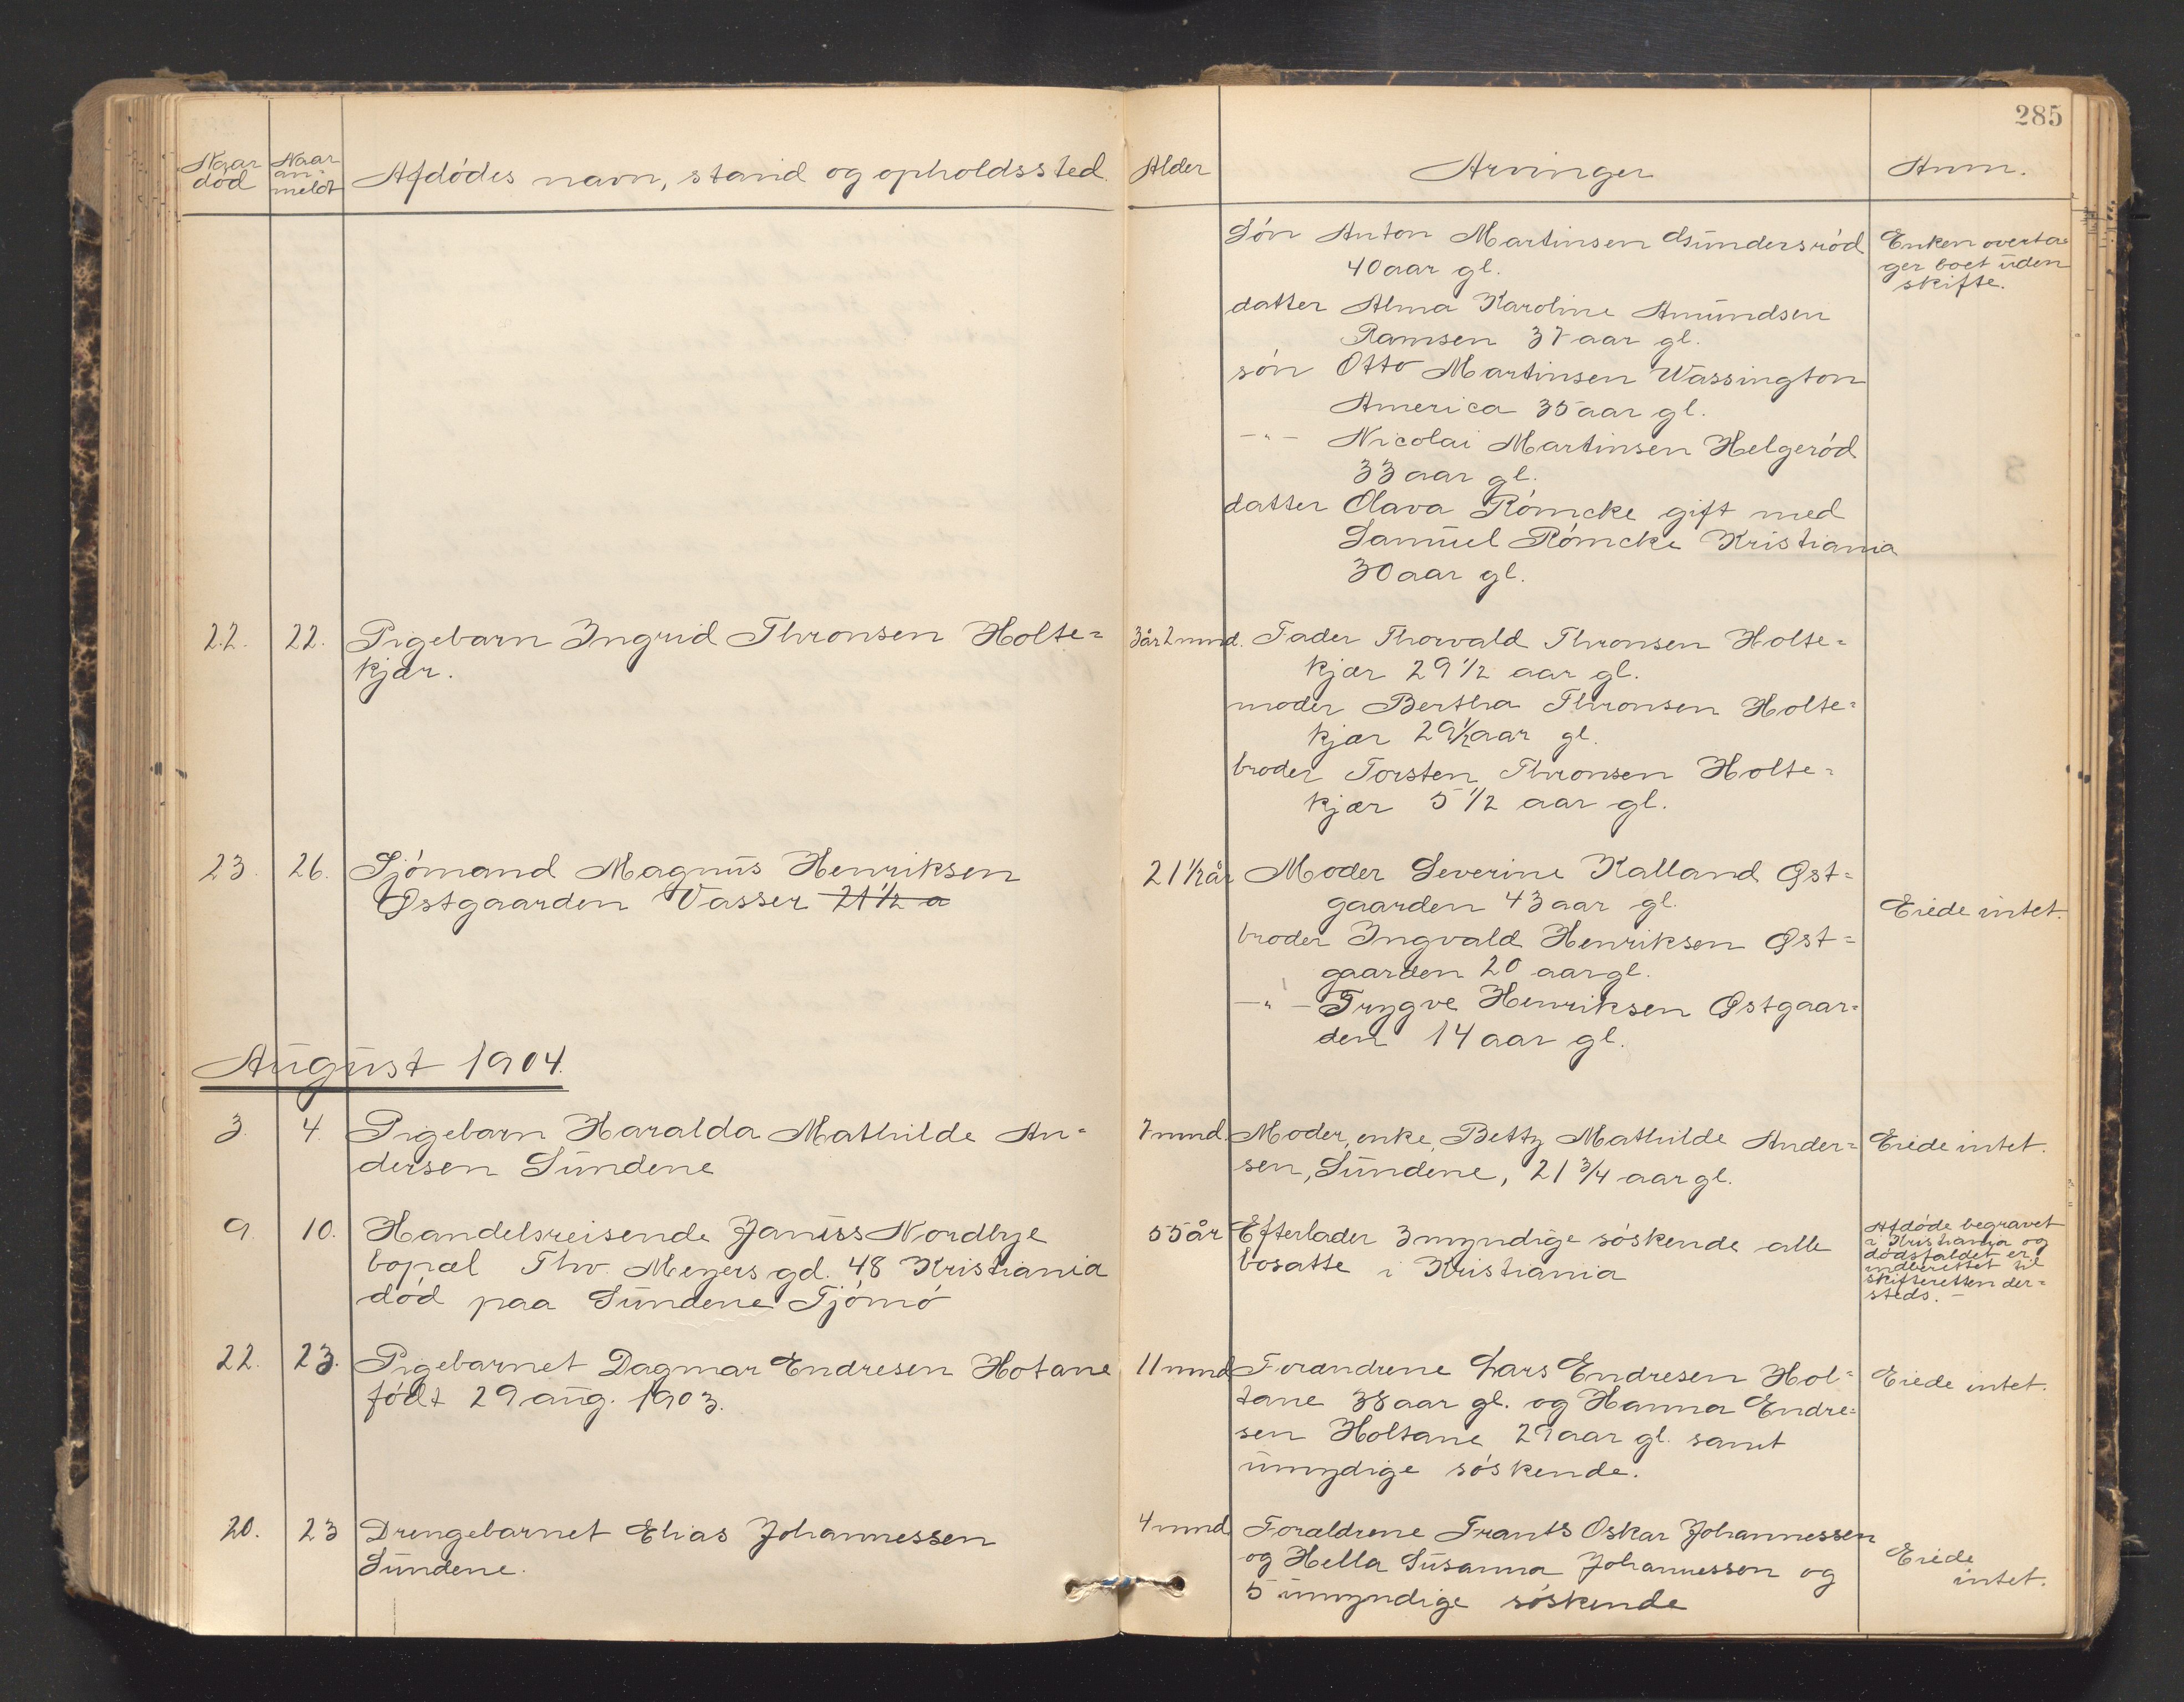 285
Naar död
Naar an-meldt
Afdódes navn, stand og opholdssted.
Alder
Arvinger
Anm.
Són Anton Martinsen Gundersród
40 aar gl.
datter Alma Karoline Amundsen
Ramsen 37 aar gl.
són Otto Martinsen Wassington
America 35 aar gl.
-"- Nicolai Martinsen Helgeród
33 aar gl.
datter Olava Rómcke gift med
Samuel Rómcke Kristiania
30 aar gl.
Enken overta-
ger boet uden
skifte.
22. 22. Pigebarn Ingrid Thronsen Holte=
kjær.
3 år 2 mnd. Fader Thorvald Thronsen Holte=
kjær 29 1/2 aar gl.
moder Bertha Thronsen Holte=
kjær 29 1/2 aar gl.
broder Torsten Thronsen Holte=
kjær 5 1/2 aar gl.
23. 26. Sjómand Magnus Henriksen
Østgaarden Vasser 21 1/2 a
21 1/2 år Moder Severine Kalland Øst=
gaarden 43 aar gl.
broder Ingvald Henriksen Øst=
gaarden 20 aar gl.
-"- Trygve Henriksen Østgaar=
den 14 aar gl.
Eiede intet.
August 1904.
3. 4. Pigebarn Haralda Mathilde An=
dersen Sundene
7 mnd. Moder, enke, Betty Mathilde Ander=
sen, Sundene, 21 3/4 aar gl.
Eiede intet.
9. 10. Handelsreisende Janiss Nordbye
bopæl Thv. Meyers gd. 48 Kristiania
dód paa Sundene Tjómó
55 år Efterlader 3 myndige sóskende alle
bosatte i Kristiania
Afdóde begravet
i Kristiania og
dódsfaldet er
indberettet til
skifteretten der=
steds. -
22. 23. Pigebarnet Dagmar Endresen Hotane
fódt 29 aug. 1903.
11 mnd Forændrene Lars Endresen Hol=
tane 38 aar gl. og Hanna Endre=
sen Holtane 29 aar gl. samt
umydige sóskende.
Eiede intet.
20. 23 Drengebarnet Elias Johannessen
Sundene.
4 mnd. Forældrene Frants Oskar Johannessen
og Hella Susanna Johannessen og
5 umyndige sóskende
Eiede
intet.